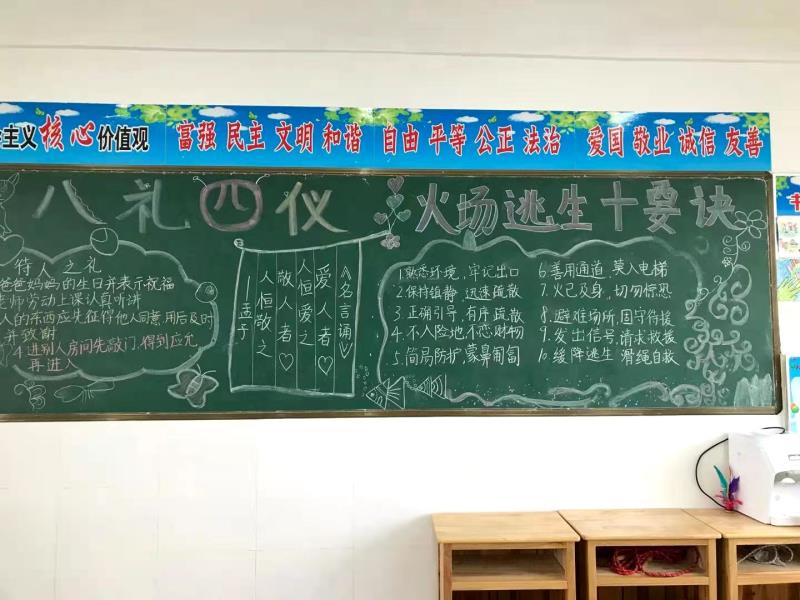 主义核心价值观 富强 民主 文明 和谐 自由 平等 公正 法治 爱国 敬业 诚信 友善
八礼四仪
待人之礼
爸爸妈妈的生日并表示祝福
老师劳动上课认真听讲
人的东西应先征得他人同意,用后及时
并致谢
4 进别人房间先敲门,得到应允
再进入
《名言诵》
爱人者
人恒爱之
敬人者
人恒敬之
—孟子
火场逃生十要诀
1.熟悉环境,牢记出口
2.保持镇静,迅速疏散
3.正确引导,有序疏散
4.不入险地,不恋财物
5.简易防护,蒙鼻匍匐
6.善用通道,莫入电梯
7.火已及身,切勿惊恐
8.避难场所,固守待援
9.发出信号,请求救援
10.缓降逃生,滑绳自救
书